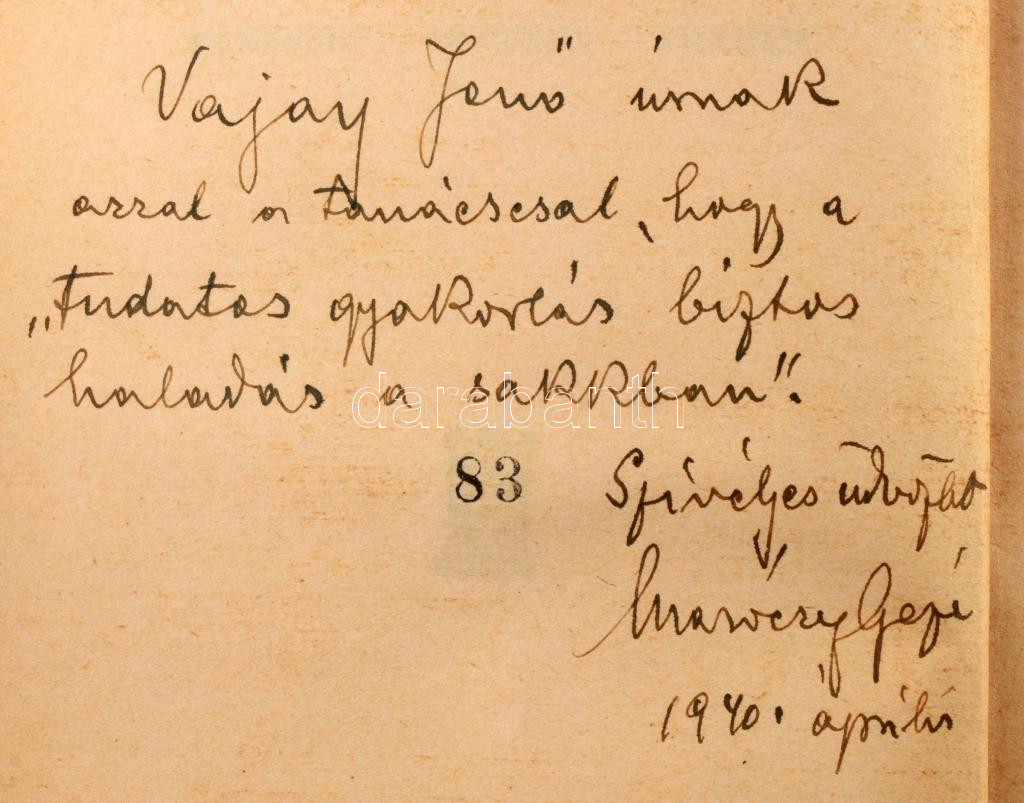 Vajay Jenő úrnak
azzal a tanácscsal, hogy a
„tudatos gyakorlás biztos
haladás a sakkban".
darabanth
83
Szivélyes üdvözlet
Maróczy Géza
1940. április